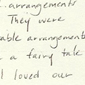 arrangements
They were
able arrangements
a fairy tale
I loved our